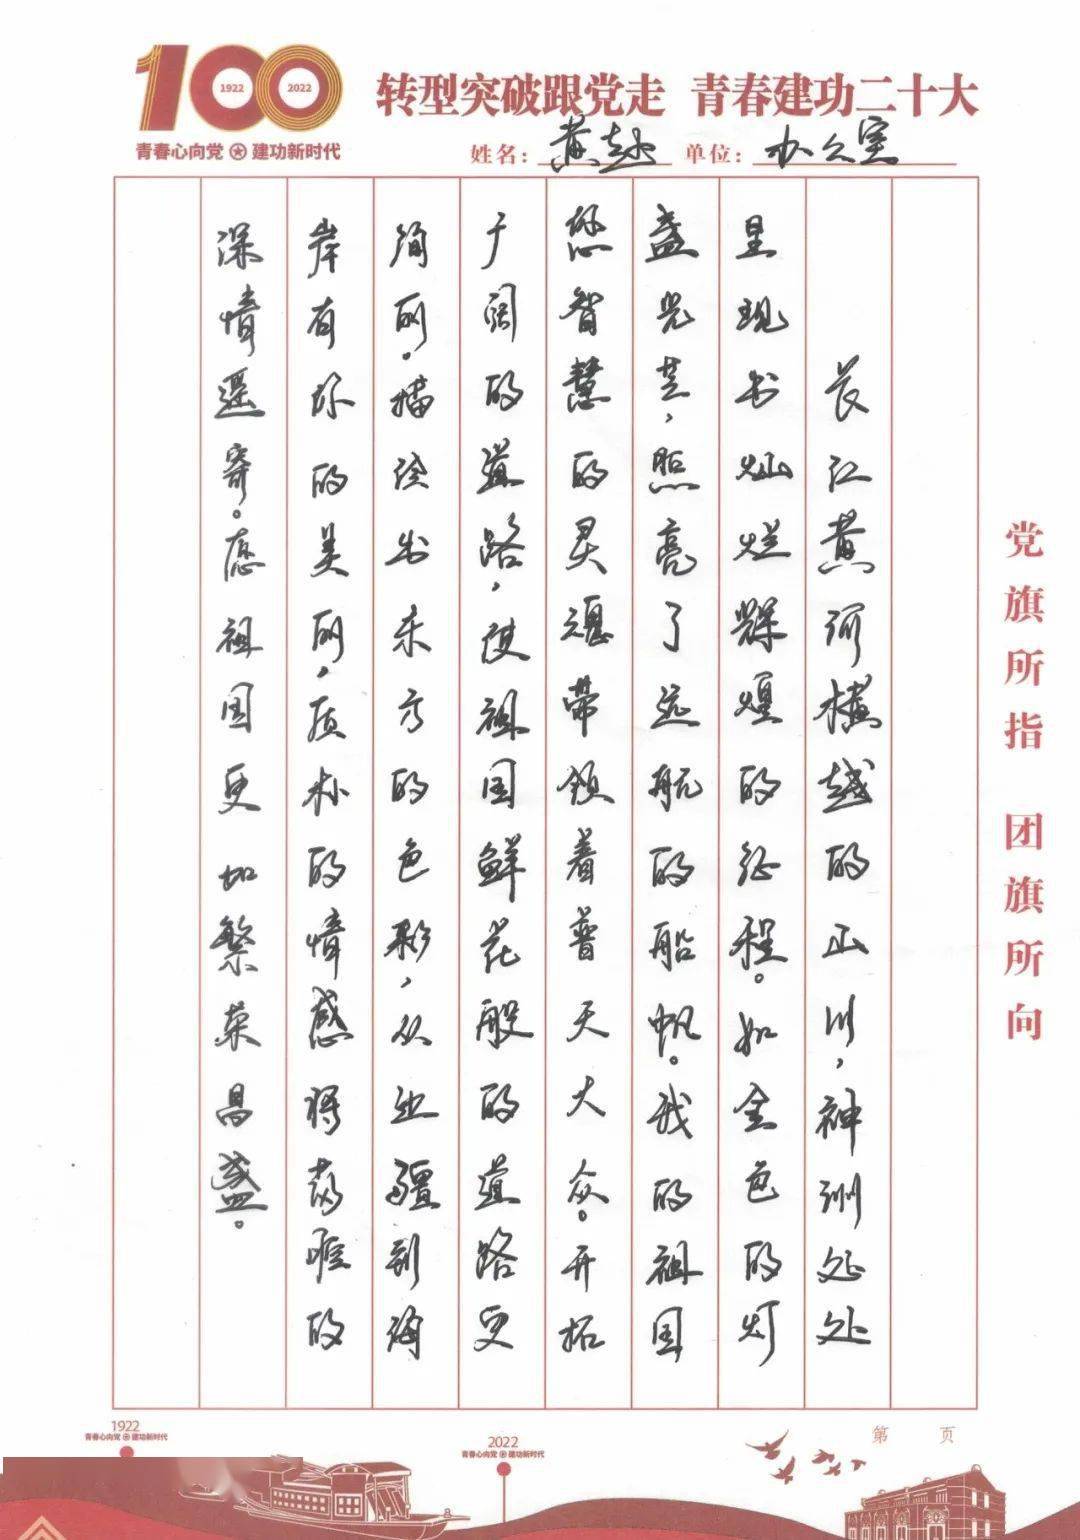 100
1922
2022
青春心向党 建功新时代
转型突破跟党走 青春建功二十大
姓名：黄 单位：办公室
长江黄河横越的山川，神洲处处
呈现出灿烂辉煌的征程。如金色的灯
盏光芒，照亮了远航的船帆。我的祖国
您智慧的灵魂带领着普天大众。开拓
广阔的道路，使祖国鲜花般的道路更
绚丽。描绘出东方的色彩，从边疆到海
岸有你的美丽，质朴的情感将的
深情遥寄。愿祖国更加繁荣昌盛。
党旗所指 团旗所向
第 页
1922
青春心向党 建功新时代
2022
青春心向党 建功新时代